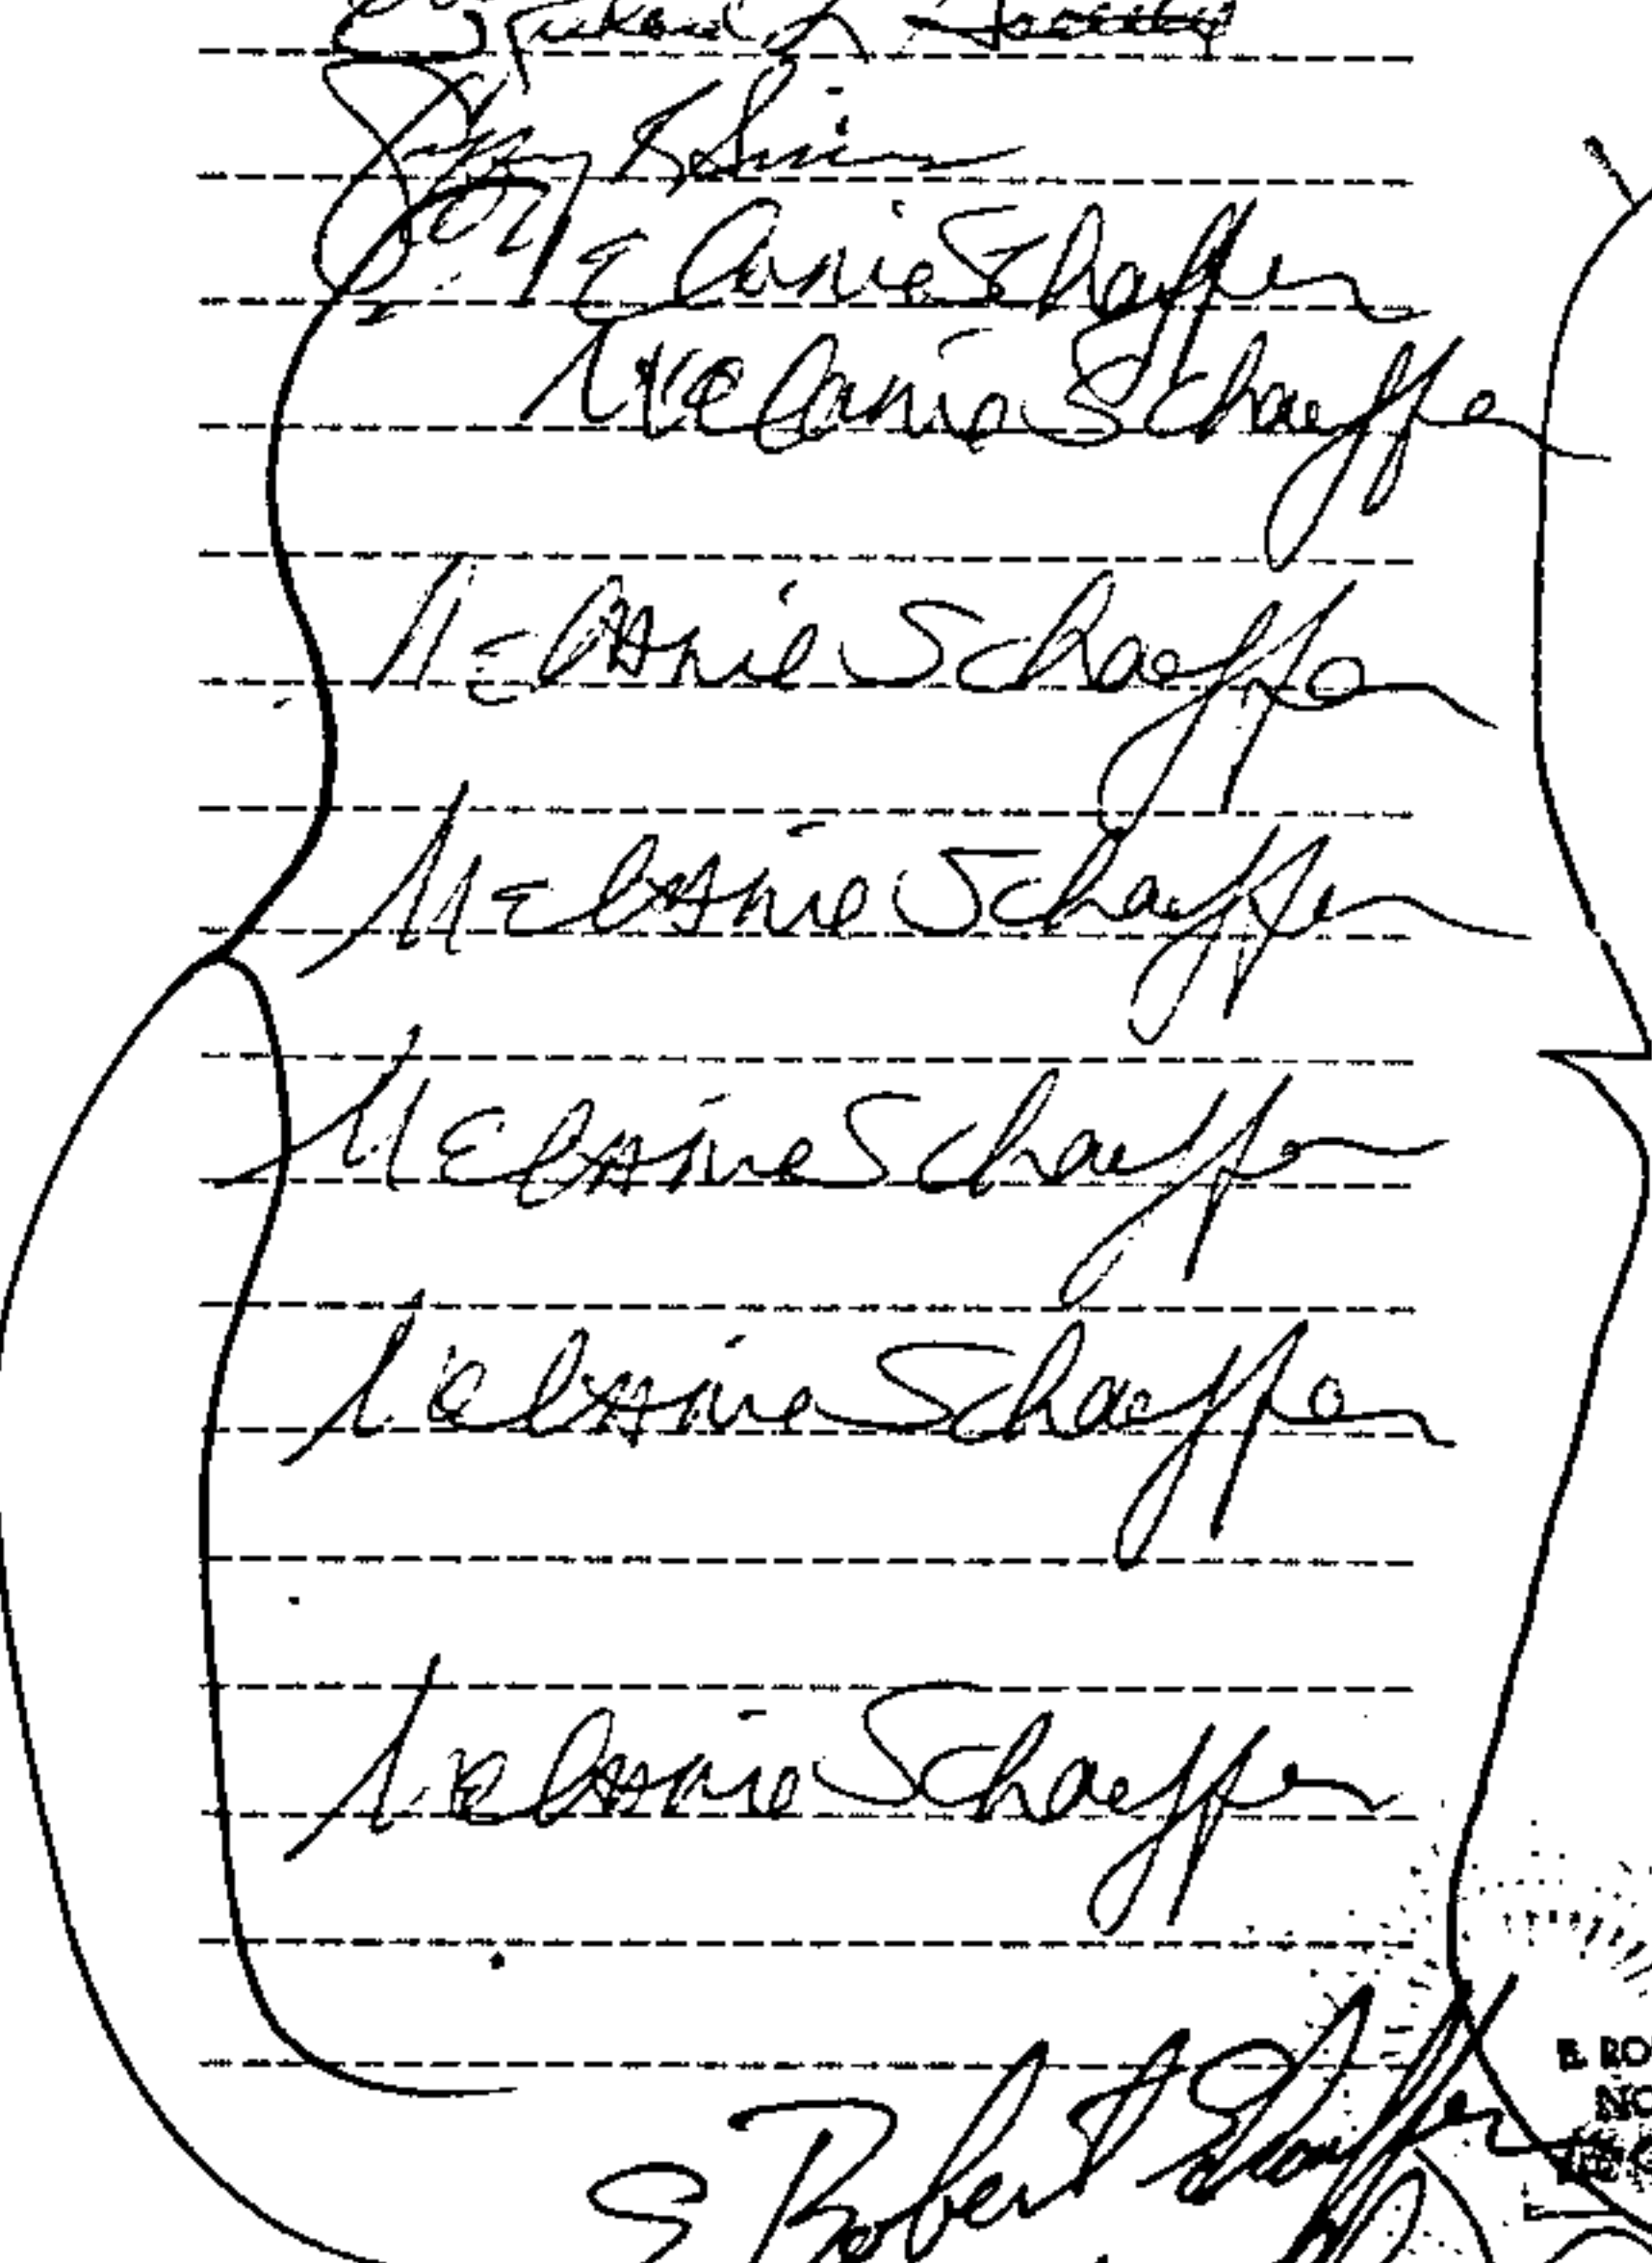 Melanie Schaeffer
Melanie Schaeffer
Melanie Schaeffer
Melanie Schaeffer
Melanie Schaeffer
Melanie Schaeffer
Melanie Schaeffer
E Robert Schaeffer